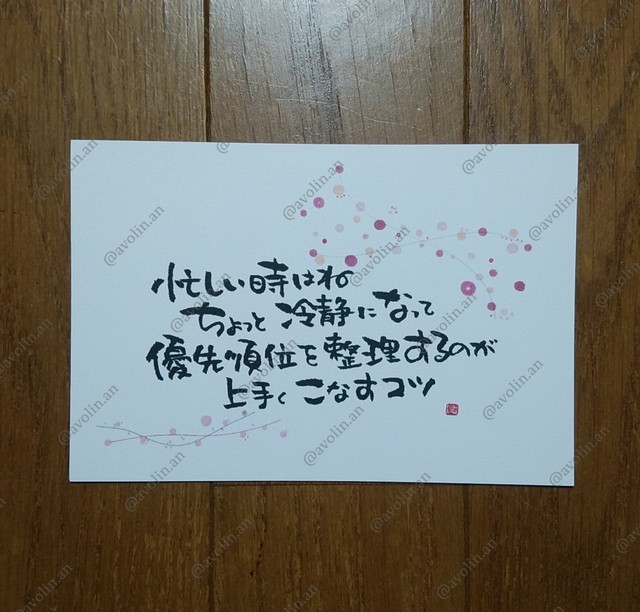 忙しい時はね
ちょっと 冷静になって
優先順位を整理するのが
上手く こなすコツ
@avolin.an